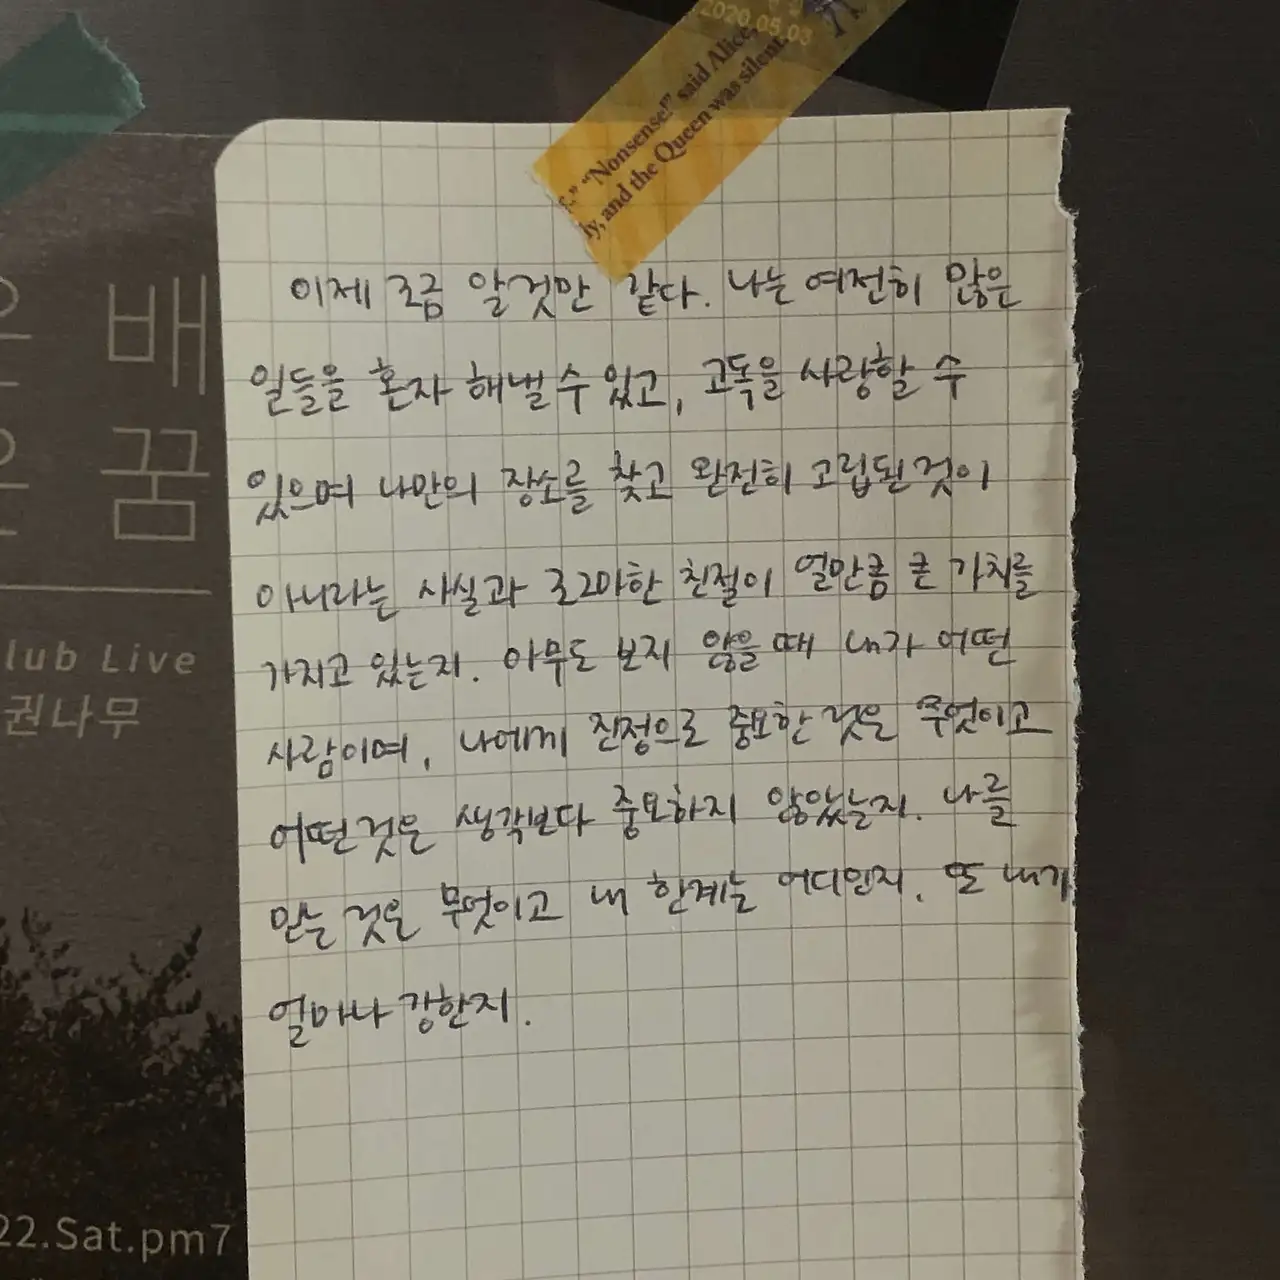 2020.05.03
"Nonsense!" said Alice,
ly, and the Queen was silent.
이제 조금 알 것만 같다. 나는 여전히 많은
일들을 혼자 해낼 수 있고, 고독을 사랑할 수
있으며 나만의 장소를 찾고 완전히 고립된 것이
아니라는 사실과 조그마한 친절이 얼만큼 큰 가치를
가지고 있는지. 아무도 보지 않을 때 내가 어떤
사람이며, 나에게 진정으로 중요한 것은 무엇이고
어떤 것은 생각보다 중요하지 않았는지. 나를
믿는 것은 무엇이고 내 한계는 어디인지. 또 내가
얼마나 강한지.
배
꿈
lub Live
권나무
22.Sat.pm7